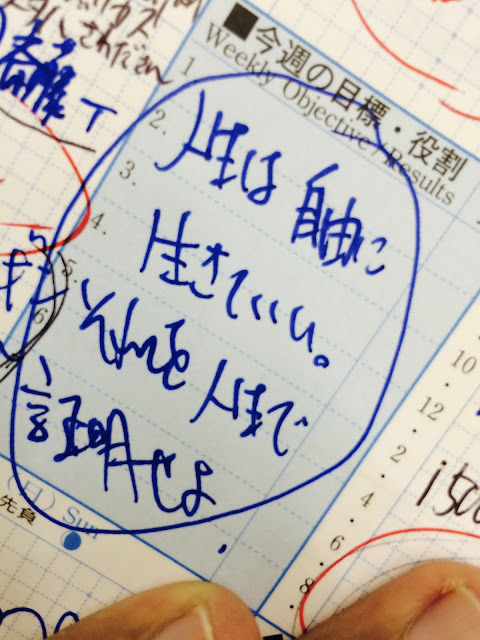 ■今週の目標・役割
Weekly Objective / Results
1
2.
3.
4.
5.
6
人生は自由に
生きていい。
それを人生で
証明せよ
斎藤T
(日) Sun
先負
10
12
2
4
6
8